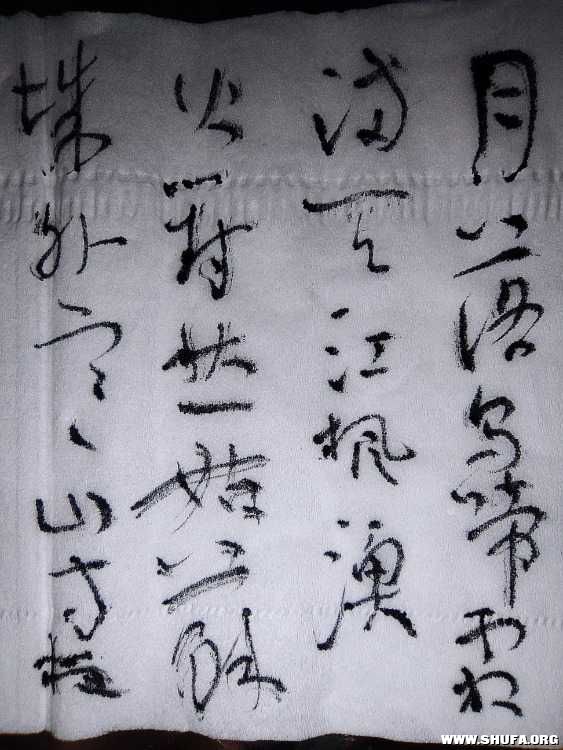 月落乌啼霜
满天江枫渔
火對姑蘇
城外寒山寺
WWW.SHUFA.ORG